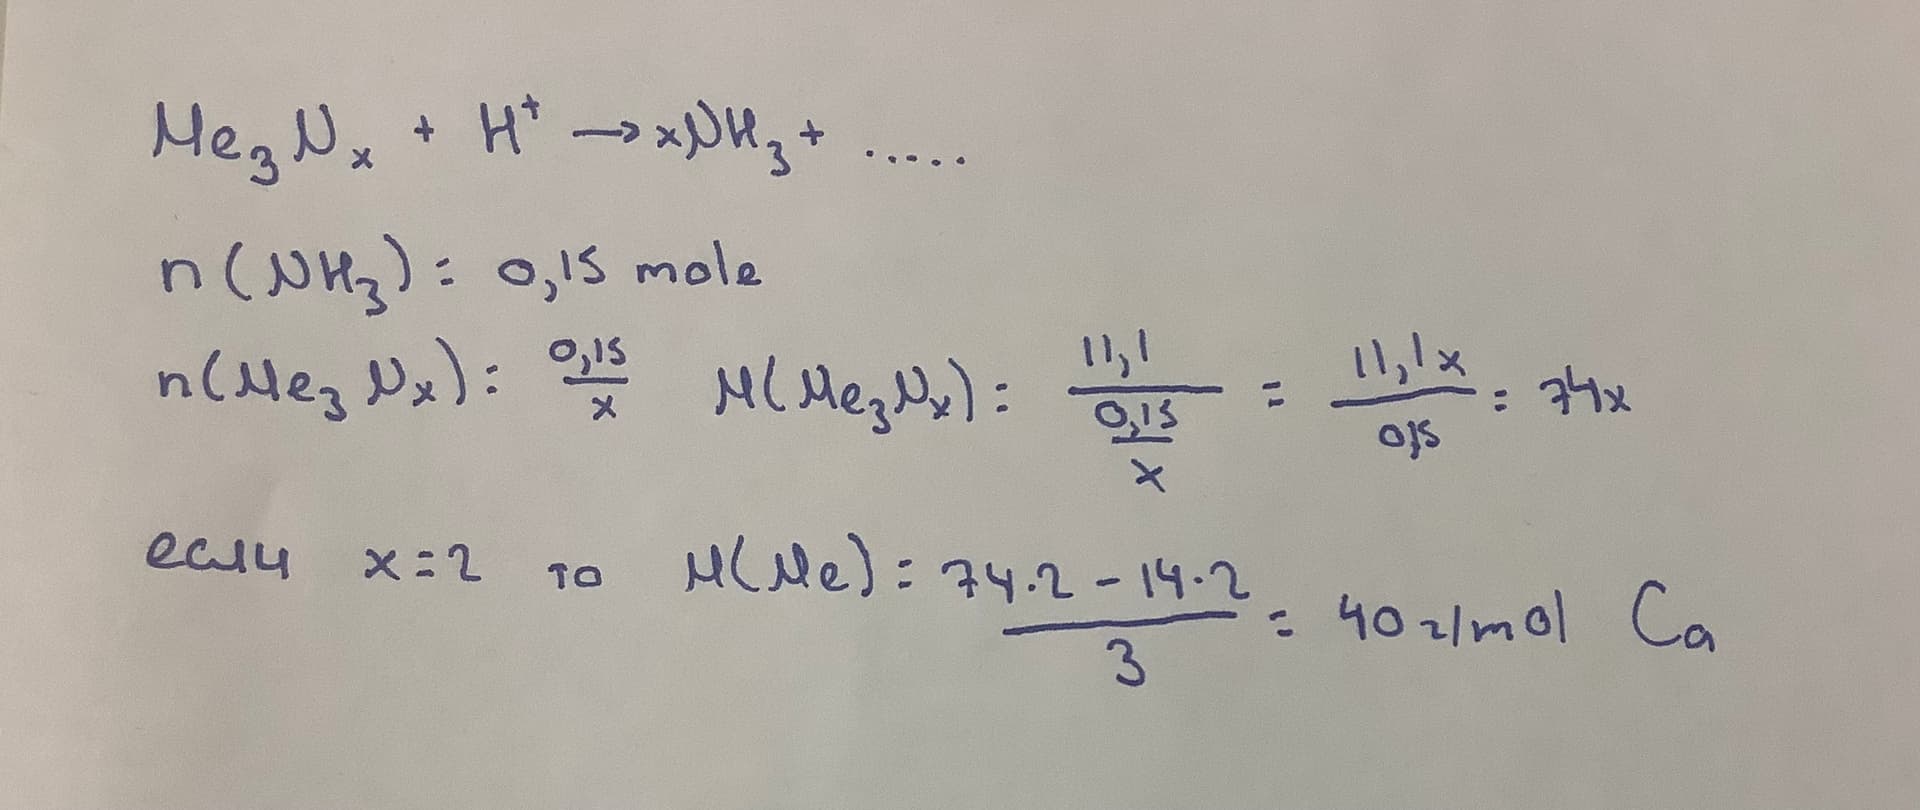 Me₃Nₓ + H⁺ → xNH₃ + .....
n(NH₃) = 0,15 mole
n(Me₃Nₓ) = 0,15/x M(Me₃Nₓ) = 11,1/(0,15/x) = 11,1x/0,15 = 74x
если x=2 то M(Me) = (74·2 - 14·2)/3 = 40 г/mol Ca